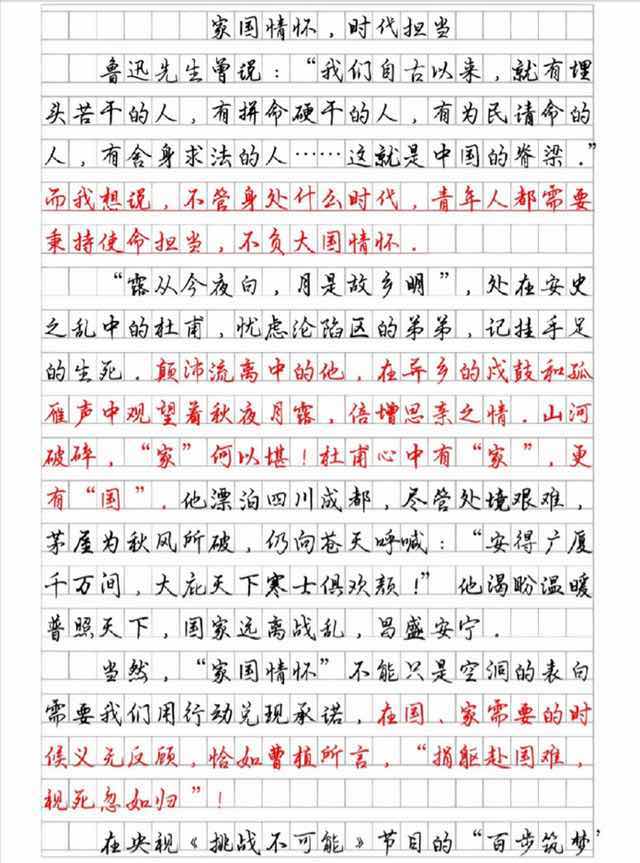 家国情怀，时代担当
鲁迅先生曾说：“我们自古以来，就有埋
头苦干的人，有拼命硬干的人，有为民请命的
人，有舍身求法的人……这就是中国的脊梁.”
而我想说，不管身处什么时代，青年人都需要
秉持使命担当，不负大国情怀.
“露从今夜白，月是故乡明”，处在安史
之乱中的杜甫，忧虑沦陷区的弟弟，记挂手足
的生死.颠沛流离中的他，在异乡的戍鼓和孤
雁声中观望着秋夜月露，倍增思亲之情.山河
破碎，“家”何以堪！杜甫心中有“家”，更
有“国”.他漂泊四川成都，尽管处境艰难，
茅屋为秋风所破，仍向苍天呼喊：“安得广厦
千万间，大庇天下寒士俱欢颜！”他渴盼温暖
普照天下，国家远离战乱，昌盛安宁.
当然，“家国情怀”不能只是空洞的表白
需要我们用行动兑现承诺，在国、家需要的时
候义无反顾，恰如曹植所言，“捐躯赴国难，
视死忽如归”！
在央视《挑战不可能》节目的“百步筑梦’